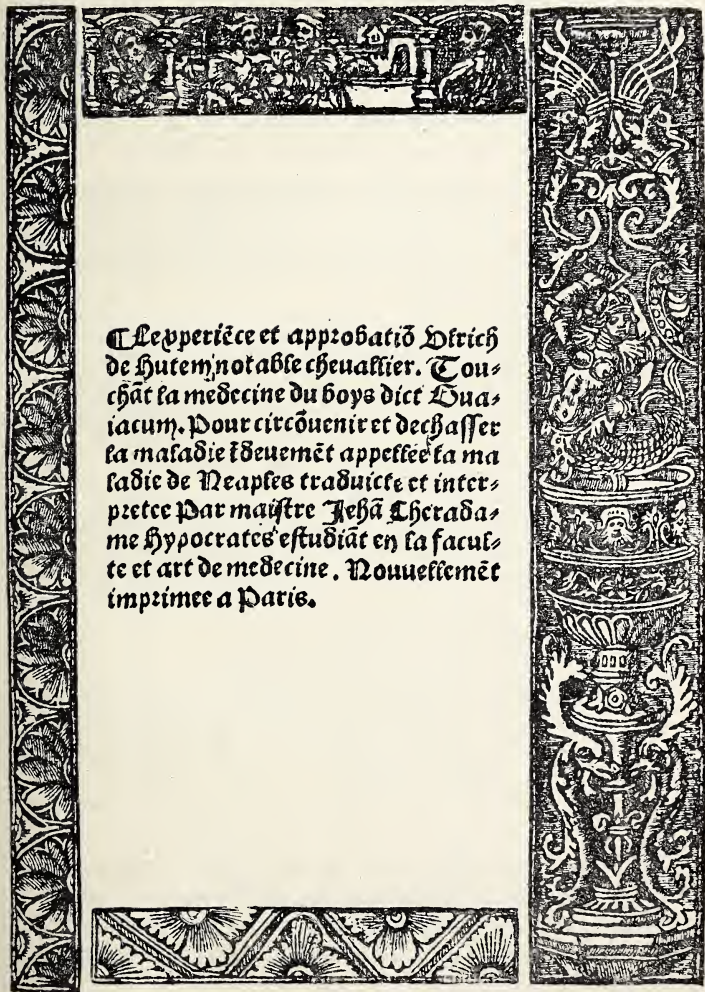 ⁋ Lexperiẽce et approbatiõ Ulrich
de Hutem notable chevallier. Tou⸗
chãt la medecine du boys dict Gua⸗
iacum. Pour circõvenir et dechasser
la maladie ĩdeuemẽt appellee la ma
ladie de Neaples traduicte et inter⸗
pretee Par maistre Jehã Cherada⸗
me Hypocrates estudiãt en la facul⸗
te et art de medecine. Nouuellemẽt
imprimee a Paris.